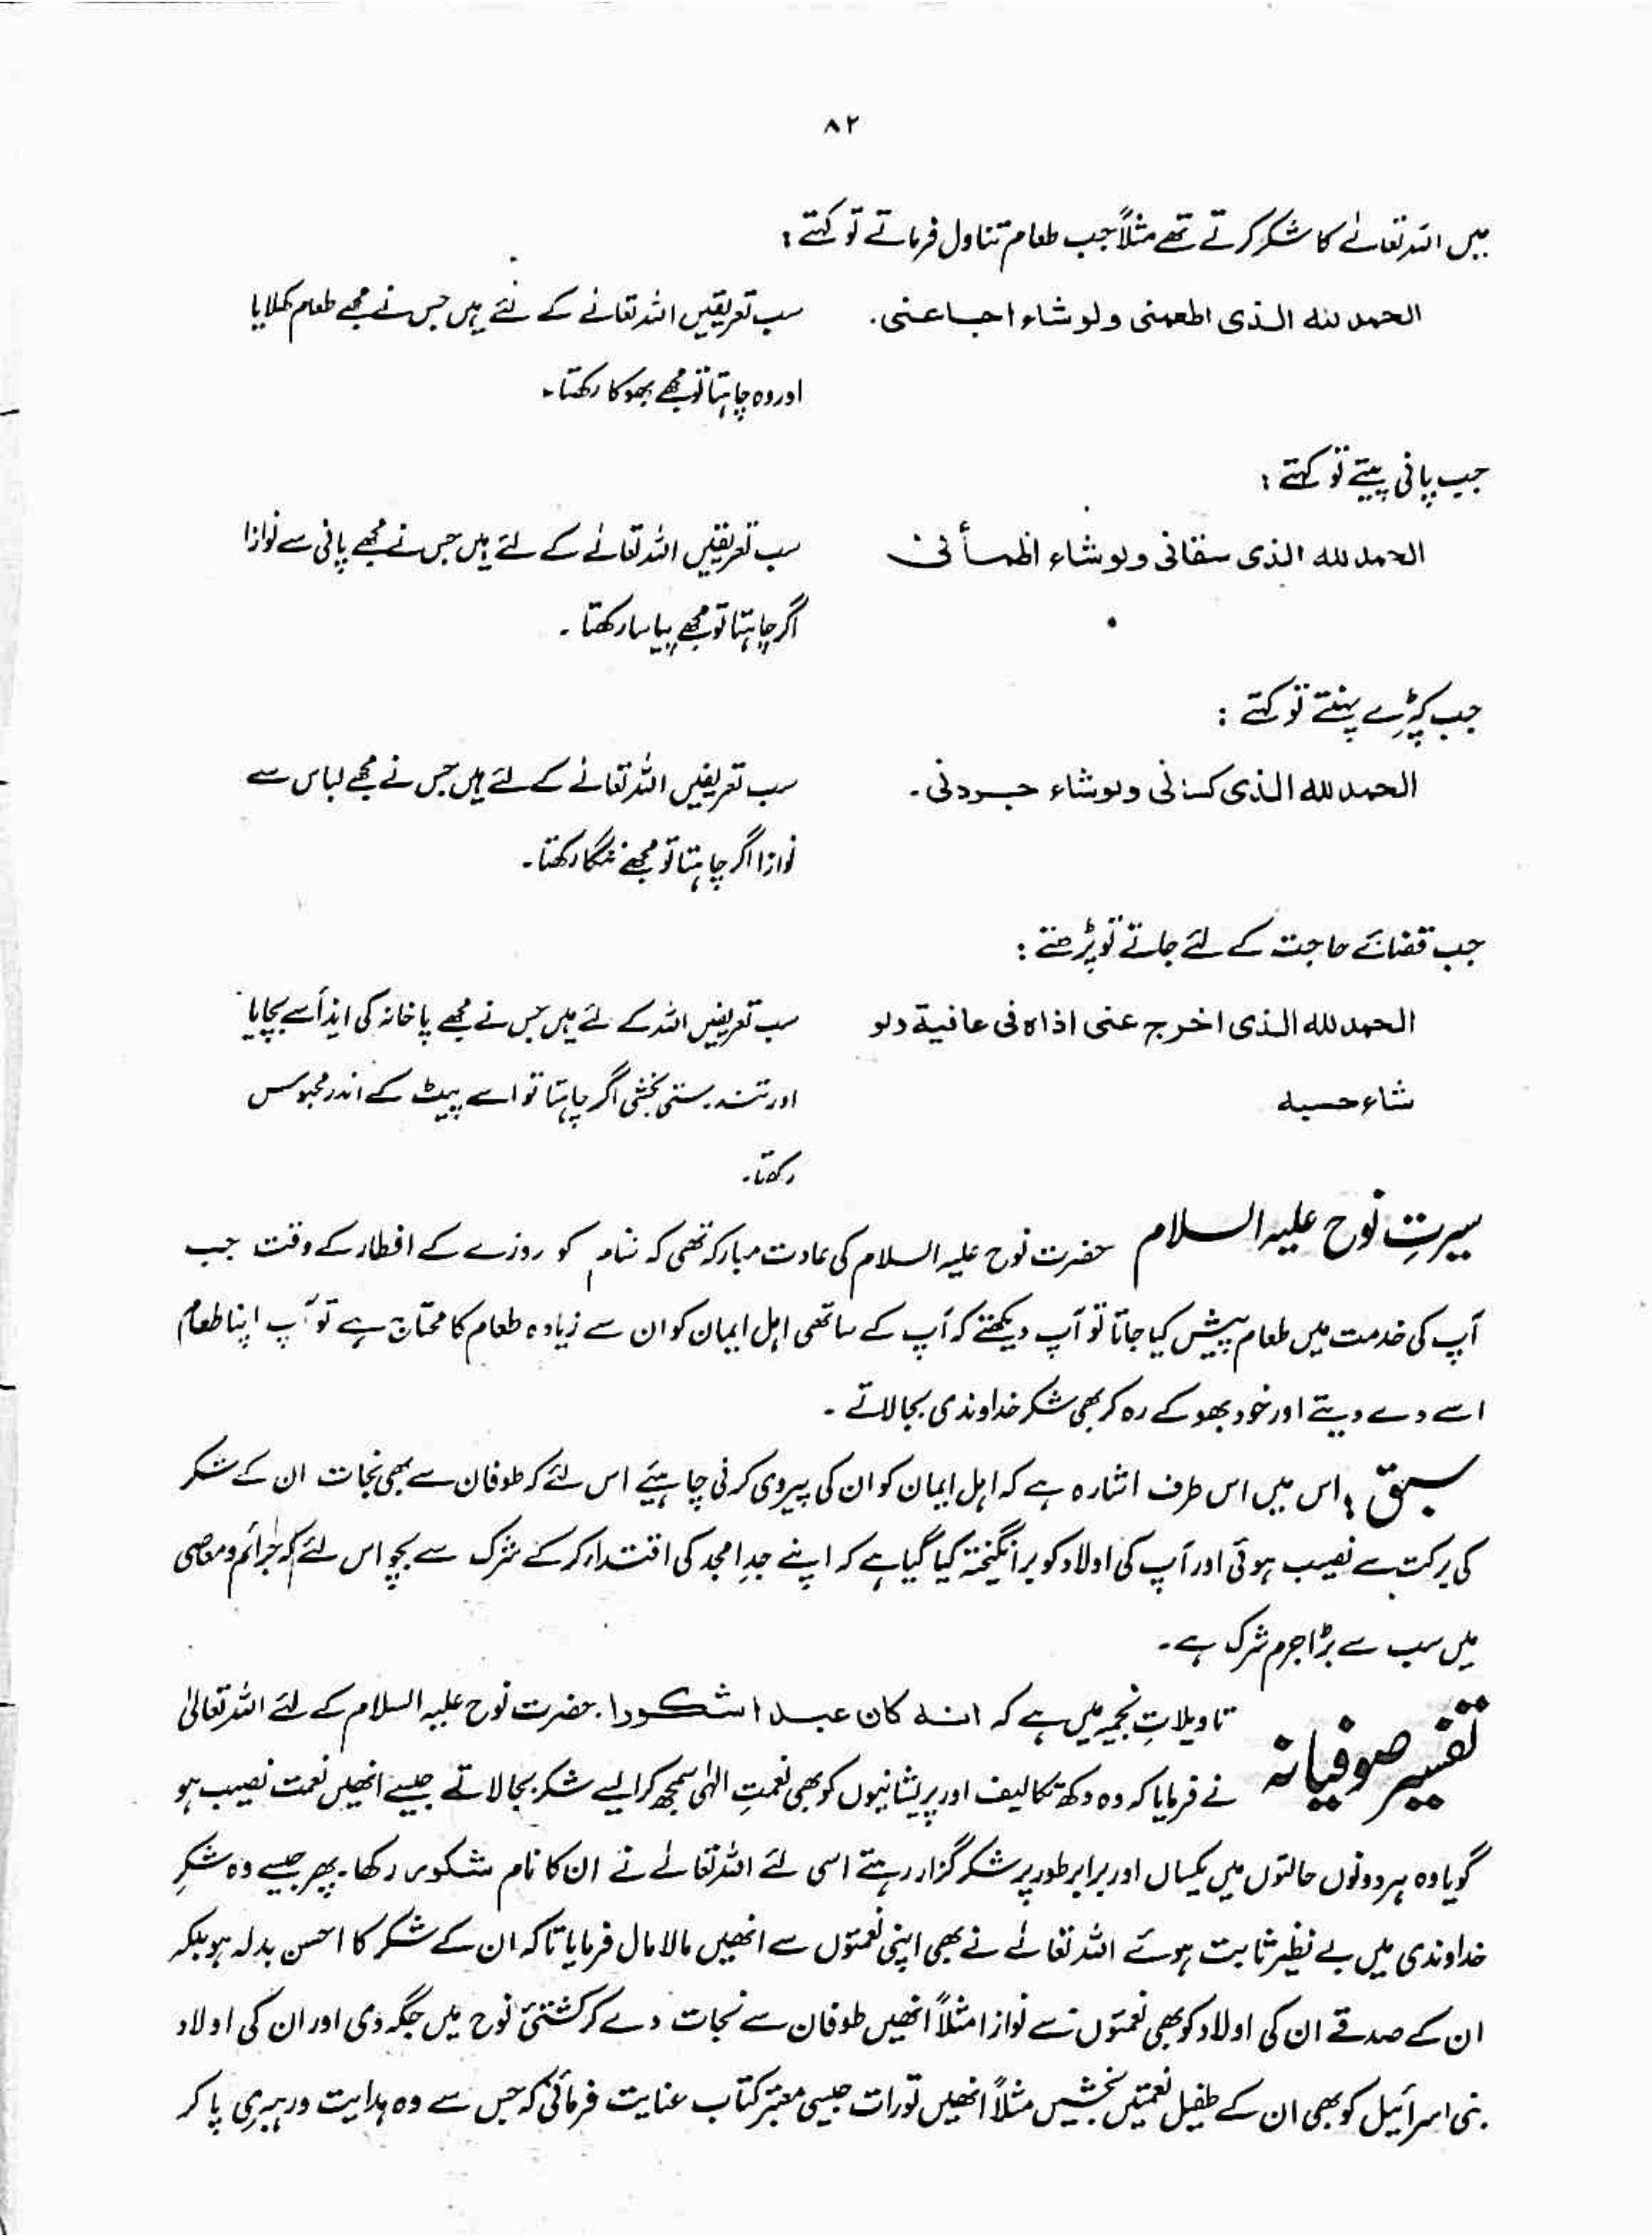 ۸۲
میں اللہ تعالےٰ کا شکر کرتے تھے مثلاً جب طعام تناول فرماتے تو کہتے :
الحمد للہ الذی اطعمنی ولو شاء اجاعنی۔
سب تعریفیں اللہ تعالےٰ کے لئے ہیں جس نے مجھے طعام کھلایا
اور وہ چاہتا تو مجھے بھوکا رکھتا۔
جب پانی پیتے تو کہتے :
الحمد للہ الذی سقانی ولو شاء اظمأنی
سب تعریفیں اللہ تعالےٰ کے لئے ہیں جس نے مجھے پانی سے نوازا
اگر چاہتا تو مجھے پیاسا رکھتا ۔
جب کپڑے پہنتے تو کہتے :
الحمد للہ الذی کسانی ولو شاء جردنی۔
سب تعریفیں اللہ تعالےٰ کے لئے ہیں جس نے مجھے لباس سے
نوازا اگر چاہتا تو مجھے ننگا رکھتا۔
جب قضائے حاجت کے لئے جاتے تو پڑھتے :
الحمد للہ الذی اخرج عنی اذاہ فی عافیة ولو
شاء حسبہ
سب تعریفیں اللہ کے لئے ہیں جس نے مجھے پاخانہ کی ایذأ سے بچایا
اور تندرستی بخشی اگر چاہتا تو اسے پیٹ کے اندر محبوس
رکھتا۔
سیرتِ نوح علیہ السلام حضرت نوح علیہ السلام کی عادت مبارکہ تھی کہ شام کو روزے کے افطار کے وقت جب
آپ کی خدمت میں طعام پیش کیا جاتا تو آپ دیکھتے کہ آپ کے ساتھی اہل ایمان کو ان سے زیادہ طعام کا محتاج ہے تو آپ اپنا طعام
اسے دے دیتے اور خود بھوکے رہ کر بھی شکر خداوندی بجا لاتے ۔
سبق : اس میں اس طرف اشارہ ہے کہ اہل ایمان کو ان کی پیروی کرنی چاہیئے اس لئے کہ طوفان سے بھی نجات ان کے شکر
کی برکت سے نصیب ہوئی اور آپ کی اولاد کو برانگیختہ کیا گیا ہے کہ اپنے جدِ امجد کی اقتداء کر کے شرک سے بچو اس لئے کہ جرائم و معاصی
میں سب سے بڑا جرم شرک ہے۔
تفسیر صوفیانہ تاویلاتِ نجمیہ میں ہے کہ انہ کان عبدا شکورا۔ حضرت نوح علیہ السلام کے لئے اللہ تعالیٰ
نے فرمایا کہ وہ دکھ تکالیف اور پریشانیوں کو بھی نعمتِ الٰہی سمجھ کر ایسے شکر بجا لاتے جیسے انھیں نعمت نصیب ہو
گویا وہ ہر دونوں حالتوں میں یکساں اور برابر طور پر شکر گزار رہتے اسی لئے اللہ تعالےٰ نے ان کا نام شکور رکھا۔ پھر جیسے وہ شکرِ
خداوندی میں بے نظیر ثابت ہوئے اللہ تعالےٰ نے بھی اپنی نعمتوں سے انھیں مالا مال فرمایا تاکہ ان کے شکر کا احسن بدلہ ہو بلکہ
ان کے صدقے ان کی اولاد کو بھی نعمتوں سے نوازا مثلاً انھیں طوفان سے نجات دے کر کشتئ نوح میں جگہ دی اور ان کی اولاد
بنی اسرائیل کو بھی ان کے طفیل نعمتیں بخشیں مثلاً انھیں تورات جیسی معتبر کتاب عنایت فرمائی کہ جس سے وہ ہدایت و رہبری پا کر